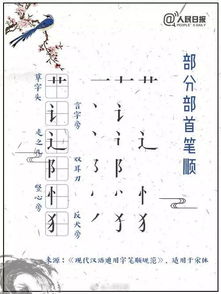 @人民日报
PEOPLE'S DAILY
部分部首笔顺
草字头 艹 一 十 艹
言字旁 讠 丶 讠
走之儿 辶 丶 辶
双耳刀 阝 阝
竖心旁 忄 丶 忄
反犬旁 犭 丿 犭
来源：《现代汉语通用字笔顺规范》，适用于宋体